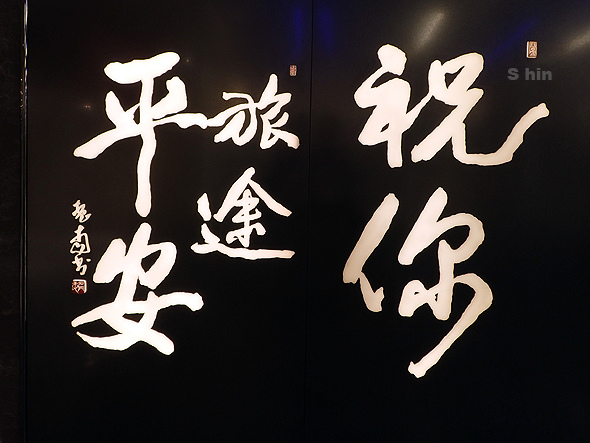 祝你
旅途
平安
S hin